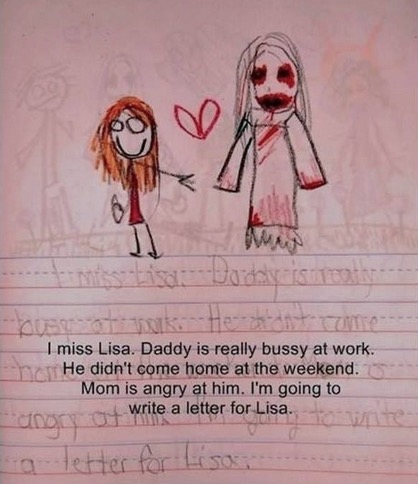 I miss Lisa. Daddy is really
busy at work. He didn't come
home
angry at him. I'm going to write
a letter for Lisa.
I miss Lisa. Daddy is really bussy at work.
He didn't come home at the weekend.
Mom is angry at him. I'm going to
write a letter for Lisa.